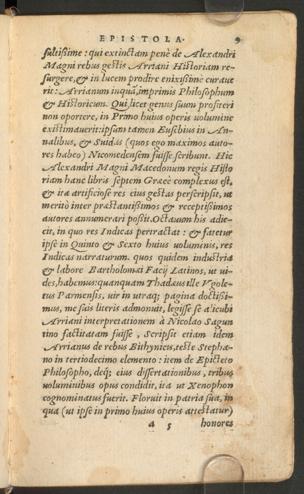 EPISTOLA. 9
sultissime: qui extinctam penè de Alexandri
Magni rebus gestis Arriani Historiam re-
surgere, & in lucem prodire enixissimè curaue
rit: Arrianum inquā, imprimis Philosophum
& Historicum. Qui, licet genus suum profiteri
non oportere, in Primo huius operis uolumine
existimauerit: ipsum tamen Eusebius in An-
nalibus, & Suidas (quos ego maximos auto-
res habeo) Nicomedensem fuisse scribunt. Hic
Alexandri Magni Macedonum regis Histo
riam hanc libris septem Graecè complexus est,
& ita artificiose res eius gestas perscripsit, ut
meritò inter praestantissimos & receptissimos
autores annumerari possit. Octauum his adie-
cit, in quo res Indicas pertractat: & fatetur
ipse in Quinto & Sexto huius uoluminis, res
Indicas narraturum. quos quidem industria
& labore Bartholomaei Facij Latinos, ut ui-
des, habemus: quanquam Thadaeus ille Vgole-
tus Parmensis, uir in utraq; pagina doctissi-
mus, me suis literis admonuit, legisse se alicubi
Arriani interpretationem à Nicolao Sagun
tino factitatam fuisse. Scripsit etiam idem
Arrianus de rebus Bithynicis, teste Stepha-
no in tertiodecimo elemento: item de Epicteto
Philosopho, deq; eius dissertationibus, tribus
uoluminibus opus condidit, ita ut Xenophon
cognominatus fuerit. Floruit in patria sua, in
qua (ut ipse in primo huius operis attestatur)
a 5 honores